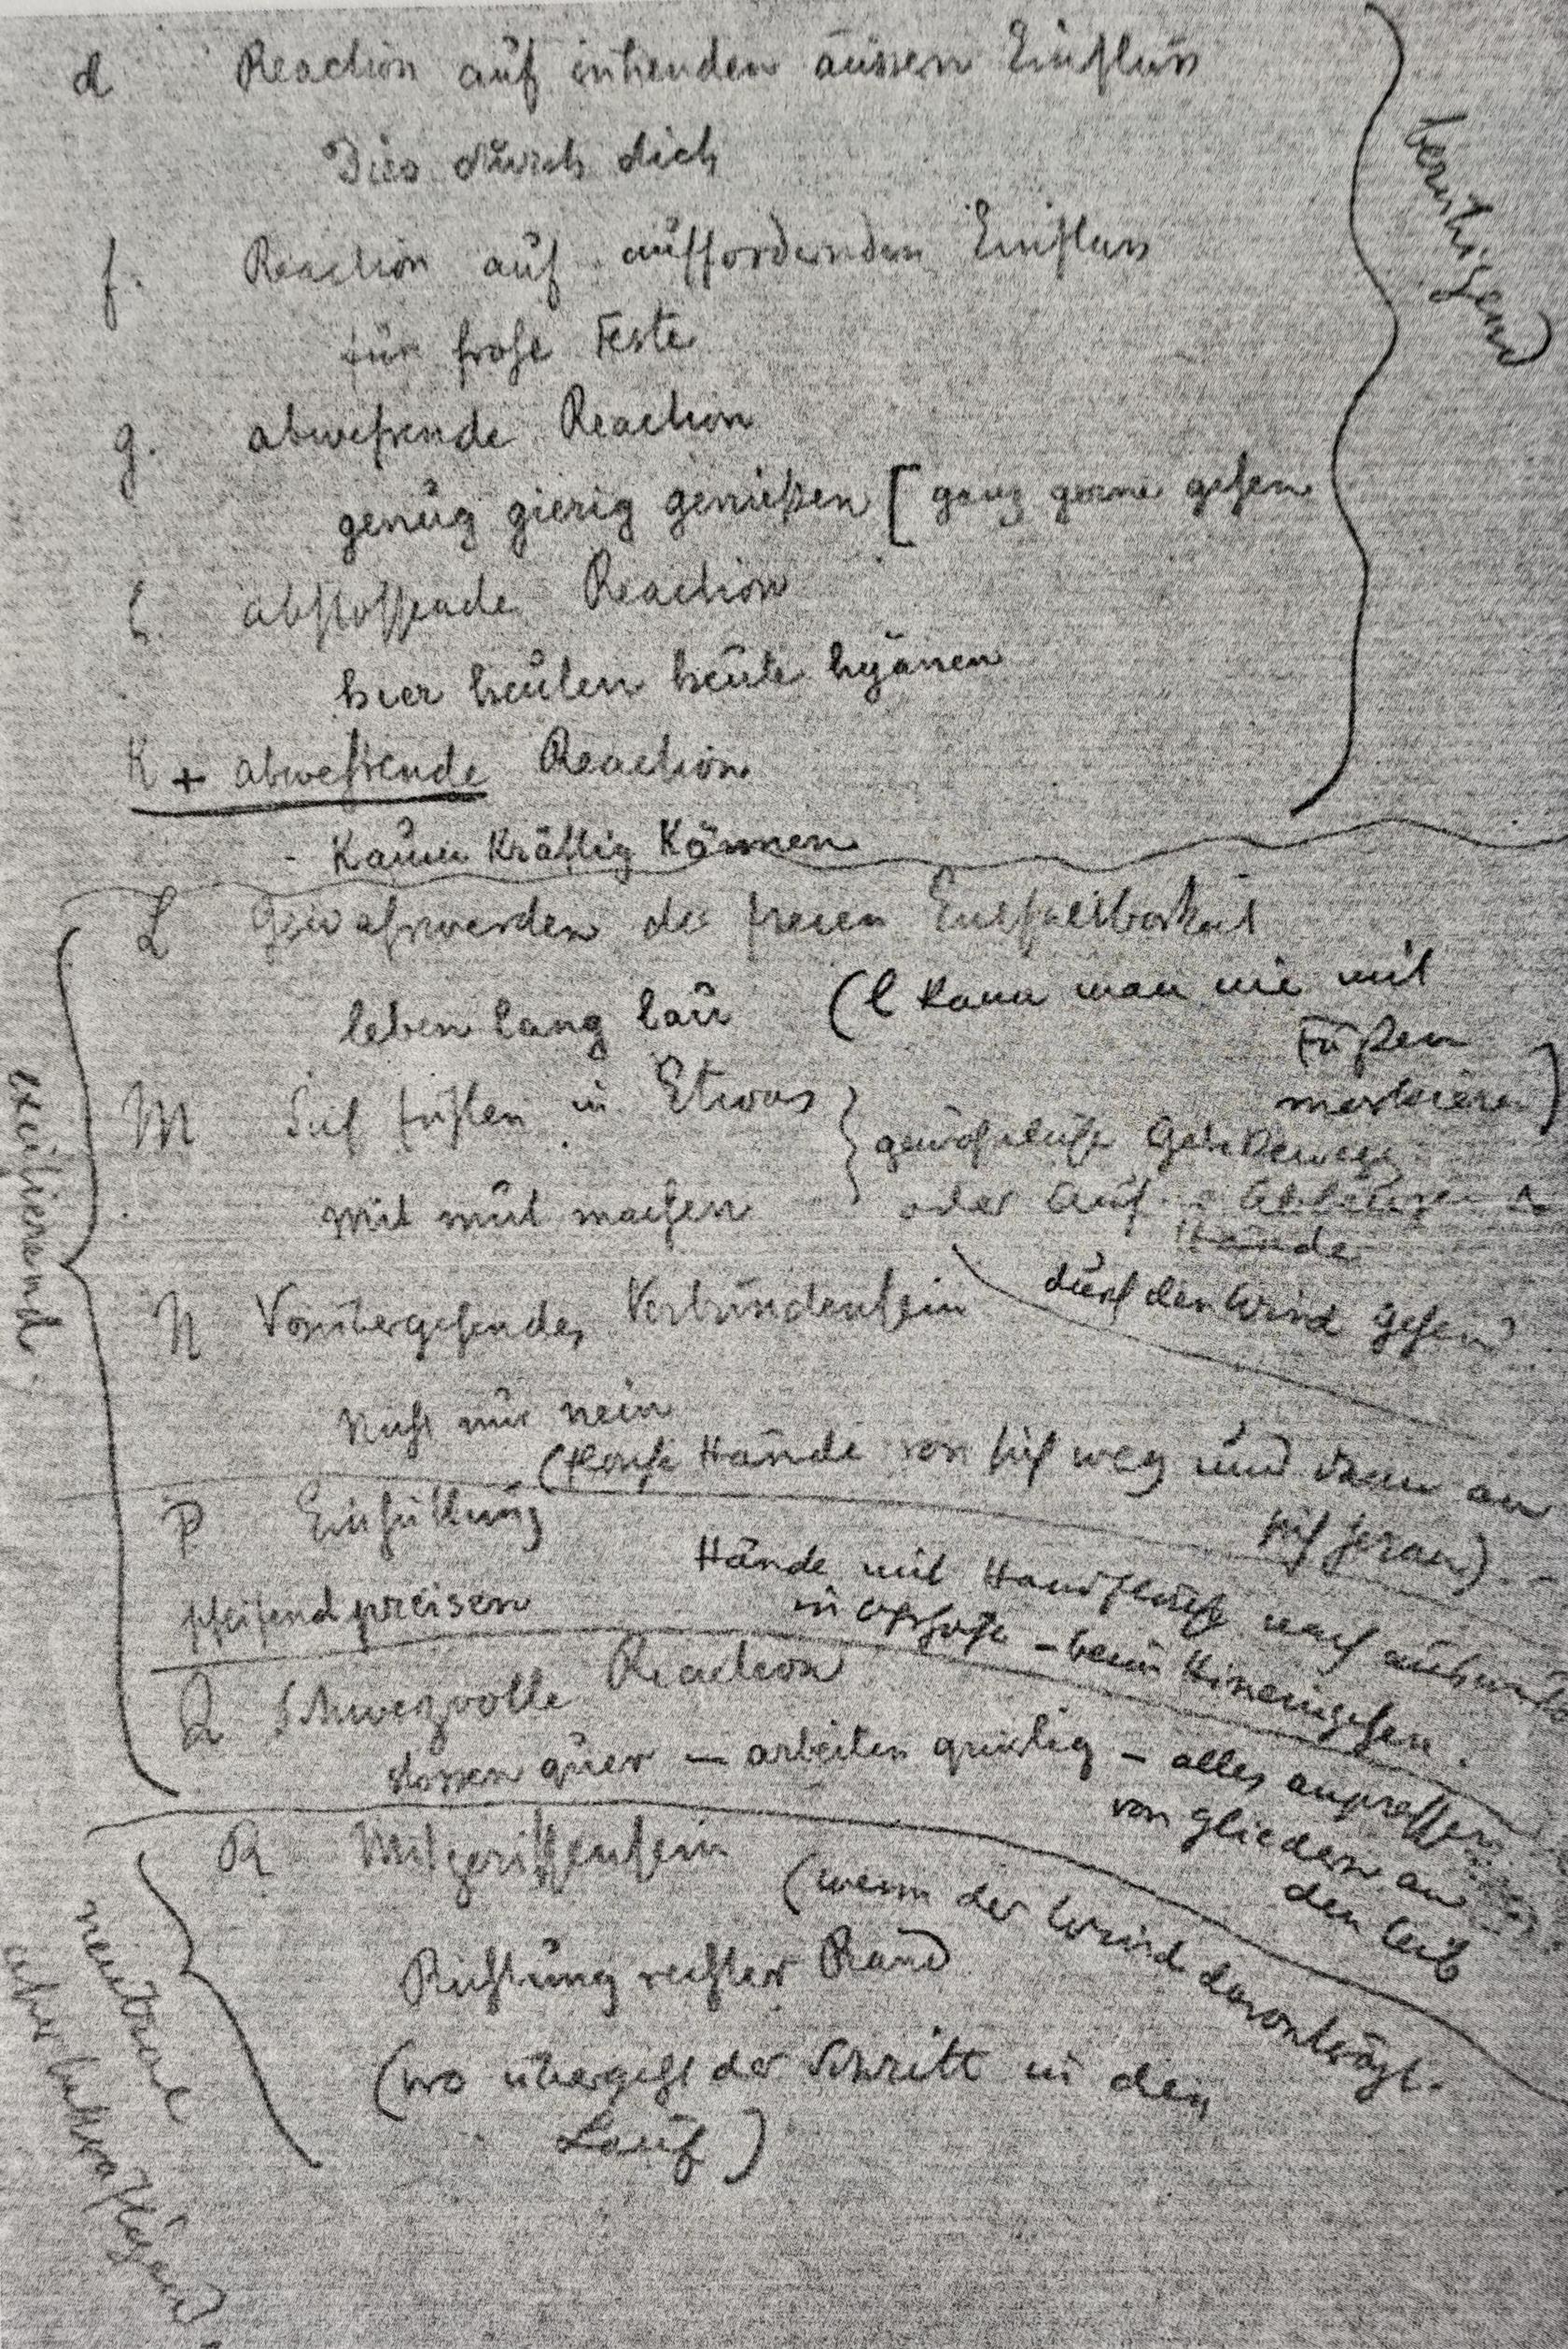 d Reaction auf äussern Einfluss
Dies durch dich
f. Reaction auf auffordernden Einfluss
für frohe Feste
beruhigend
g. abwehrende Reaction
genug gierig genießen [ ganz gerne gehen
h. abstossende Reaction
hier heulen heute hyänen
K + abwehrende Reaction
- Kaum Kräftig Können
L Gewahrwerden der freien Entfaltbarkeit
leben lang lau (l kann man nie mit
Füßen
markieren)
M Sich fühlen in Etwas
gewöhnliche
mit mut machen
oder Auf
Hände
durch den Wind gehen
exaltierend
N Vorübergehendes Verbundensein
Nicht nur nein
(flache Hände von sich weg und dann an
sich heran)
P Einhüllung
Hände mit Handfläche nach auswärts
pfeifend preisen
in - beim Hineingehen.
Q Schmerzvolle Reaction
stossen quer - arbeiten - alles anpressen
von Gliedern an
den Leib
R Mitgerissensein
(wenn der Wind davonträgt.
Richtung rechter Rand
(wo übergeht der Schritt in den
Lauf)
neutral
aber bekräftigend